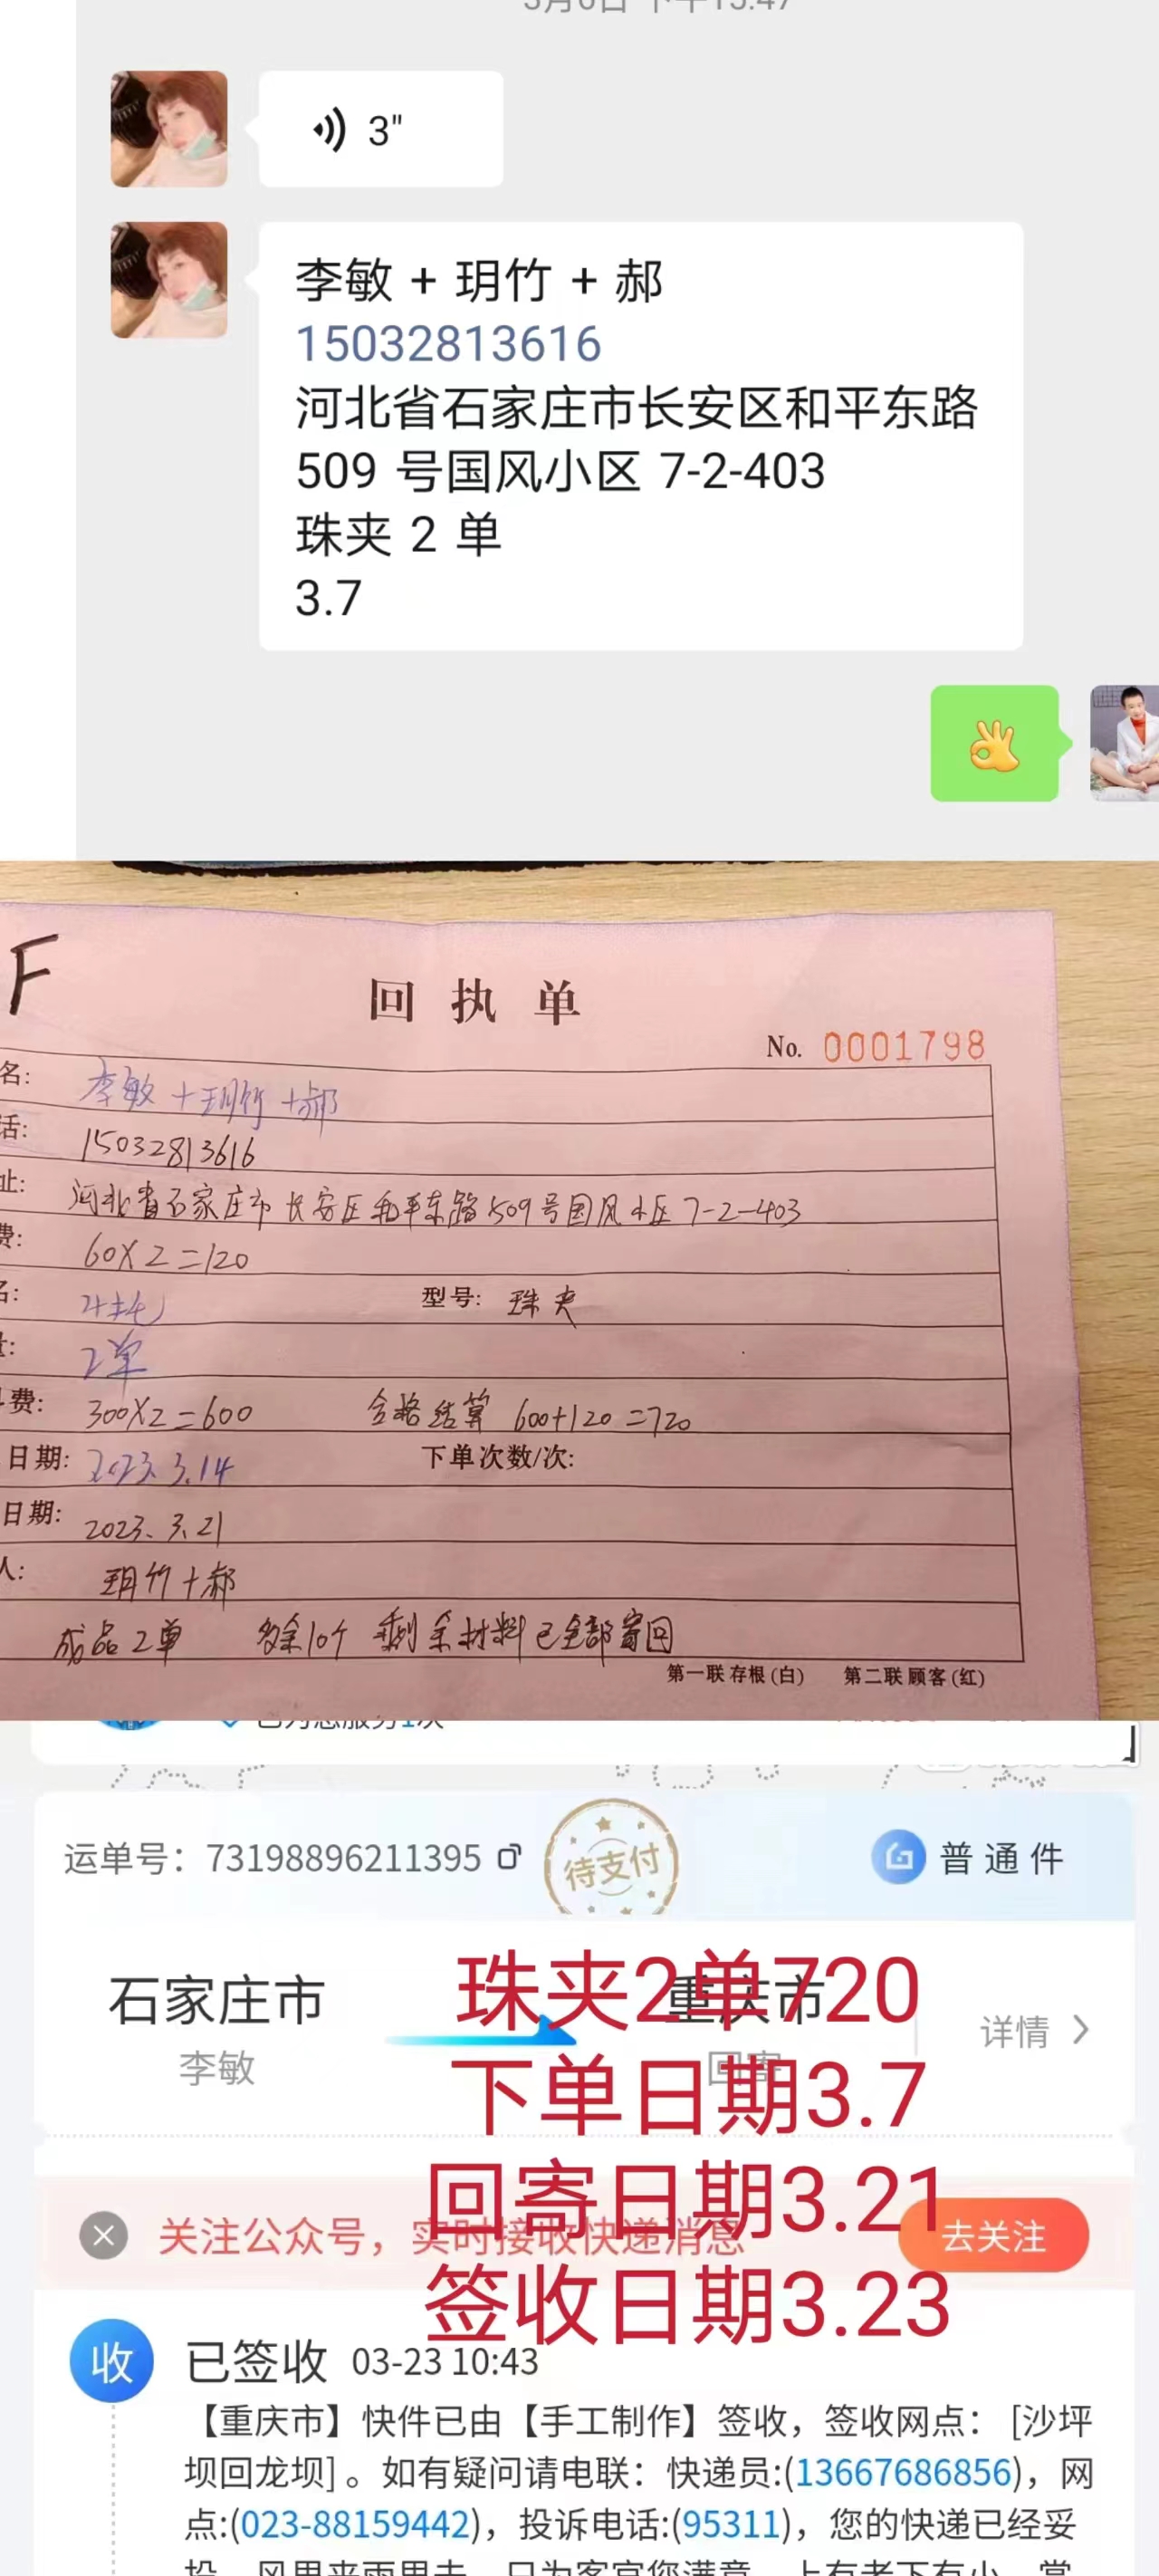 3"
李敏 + 玥竹 + 郝
15032813616
河北省石家庄市长安区和平东路
509 号国风小区 7-2-403
珠夹 2 单
3.7
F
回执单
No. 0001798
名: 李敏+玥竹+郝
话: 15032813616
址: 河北省石家庄市长安区和平东路509号国风小区7-2-403
费: 60X2=120
名: 型号: 珠夹
2单
费: 300X2=600 合格结算 600+120=720
日期: 2023.3.14 下单次数/次:
日期: 2023.3.21
人: 玥竹+郝
成品2单 多余10个 剩余材料已全部寄回
第一联 存根(白) 第二联 顾客(红)
已为您服务1次
运单号：73198896211395 待支付 普通件
石家庄市 重庆市 详情
李敏 回寄
珠夹2单720
下单日期3.7
回寄日期3.21
签收日期3.23
关注公众号，实时接收快递消息 去关注
收 已签收 03-23 10:43
【重庆市】快件已由【手工制作】签收，签收网点： [沙坪
坝回龙坝] 。如有疑问请电联：快递员:(13667686856)，网
点:(023-88159442)，投诉电话:(95311)，您的快递已经妥